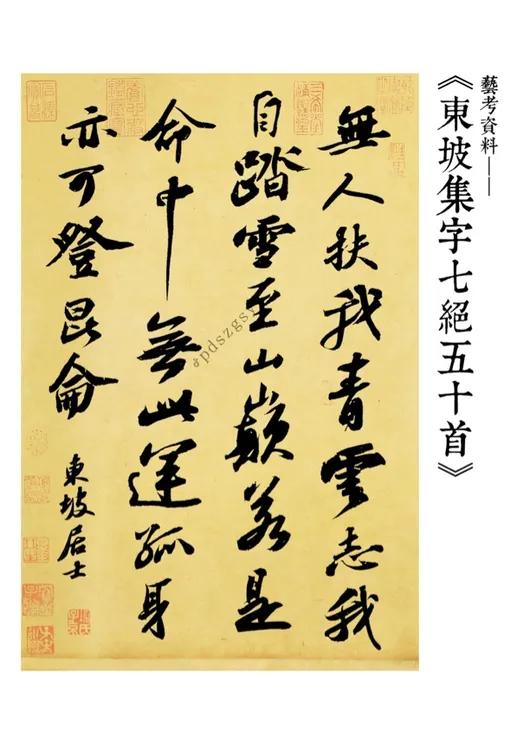 藝考資料——
《東坡集字七絕五十首》
無人扶我青雲志我
自踏雪至山巔若是
命中無此運孤身
亦可登昆侖
東坡居士